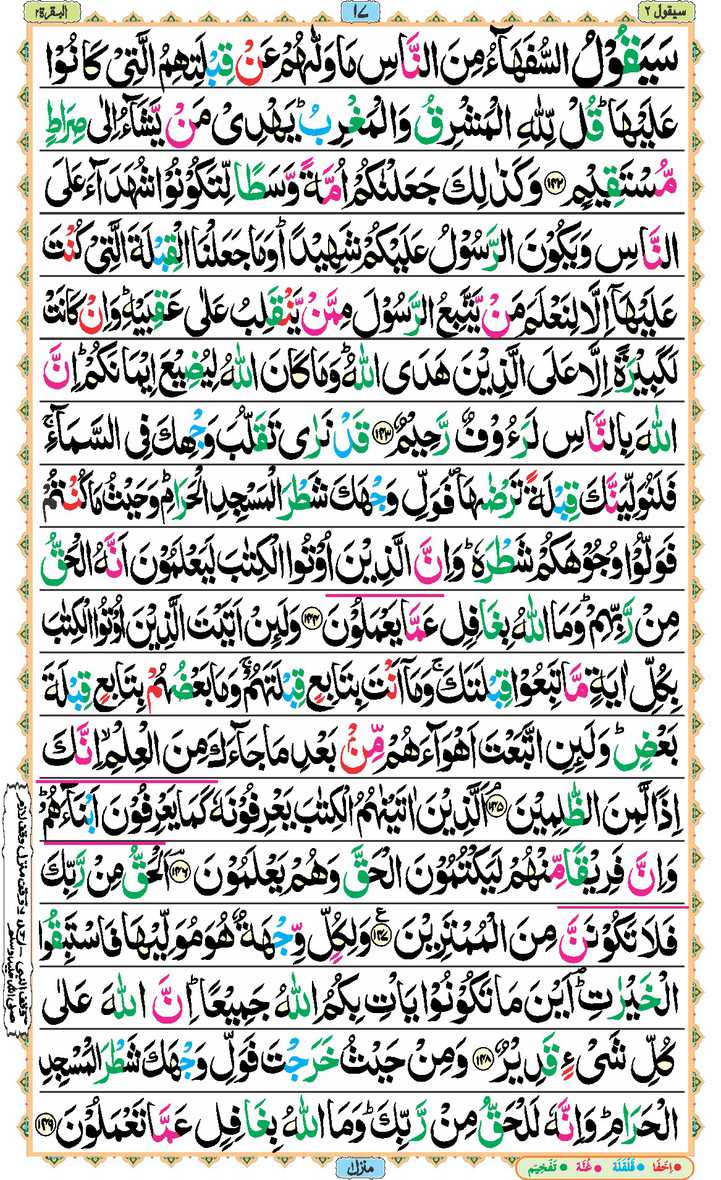 سيقول ٢
١٧
البقرة ٢
سَيَقُوْلُ السُّفَهَآءُ مِنَ النَّاسِ مَا وَلّٰىهُمْ عَنْ قِبْلَتِهِمُ الَّتِيْ كَانُوْا
عَلَيْهَا ؕ قُلْ لِّلّٰهِ الْمَشْرِقُ وَالْمَغْرِبُ ؕ يَهْدِيْ مَنْ يَّشَآءُ اِلٰى صِرَاطٍ
مُّسْتَقِيْمٍ ۝۱۴۲ وَكَذٰلِكَ جَعَلْنٰكُمْ اُمَّةً وَّسَطًا لِّتَكُوْنُوْا شُهَدَآءَ عَلَى
النَّاسِ وَيَكُوْنَ الرَّسُوْلُ عَلَيْكُمْ شَهِيْدًا ؕ وَمَا جَعَلْنَا الْقِبْلَةَ الَّتِيْ كُنْتَ
عَلَيْهَاۤ اِلَّا لِنَعْلَمَ مَنْ يَّتَّبِعُ الرَّسُوْلَ مِمَّنْ يَّنْقَلِبُ عَلٰى عَقِبَيْهِ ؕ وَاِنْ كَانَتْ
لَكَبِيْرَةً اِلَّا عَلَى الَّذِيْنَ هَدَى اللّٰهُ ؕ وَمَا كَانَ اللّٰهُ لِيُضِيْعَ اِيْمَانَكُمْ ؕ اِنَّ
اللّٰهَ بِالنَّاسِ لَرَءُوْفٌ رَّحِيْمٌ ۝۱۴۳ قَدْ نَرٰى تَقَلُّبَ وَجْهِكَ فِي السَّمَآءِ ۚ
فَلَنُوَلِّيَنَّكَ قِبْلَةً تَرْضٰىهَا ۪ فَوَلِّ وَجْهَكَ شَطْرَ الْمَسْجِدِ الْحَرَامِ ؕ وَحَيْثُ مَا كُنْتُمْ
فَوَلُّوْا وُجُوْهَكُمْ شَطْرَهٗ ؕ وَاِنَّ الَّذِيْنَ اُوْتُوا الْكِتٰبَ لَيَعْلَمُوْنَ اَنَّهُ الْحَقُّ
مِنْ رَّبِّهِمْ ؕ وَمَا اللّٰهُ بِغَافِلٍ عَمَّا يَعْمَلُوْنَ ۝۱۴۴ وَلَئِنْ اَتَيْتَ الَّذِيْنَ اُوْتُوا الْكِتٰبَ
بِكُلِّ اٰيَةٍ مَّا تَبِعُوْا قِبْلَتَكَ ۚ وَمَاۤ اَنْتَ بِتَابِعٍ قِبْلَتَهُمْ ۚ وَمَا بَعْضُهُمْ بِتَابِعٍ قِبْلَةَ
بَعْضٍ ؕ وَلَئِنِ اتَّبَعْتَ اَهْوَآءَهُمْ مِّنْۢ بَعْدِ مَا جَآءَكَ مِنَ الْعِلْمِ ۙ اِنَّكَ
اِذًا لَّمِنَ الظّٰلِمِيْنَ ۝۱۴۵ اَلَّذِيْنَ اٰتَيْنٰهُمُ الْكِتٰبَ يَعْرِفُوْنَهٗ كَمَا يَعْرِفُوْنَ اَبْنَآءَهُمْ ؕ
وَاِنَّ فَرِيْقًا مِّنْهُمْ لَيَكْتُمُوْنَ الْحَقَّ وَهُمْ يَعْلَمُوْنَ ۝۱۴۶ اَلْحَقُّ مِنْ رَّبِّكَ
فَلَا تَكُوْنَنَّ مِنَ الْمُمْتَرِيْنَ ۝۱۴۷ ع وَلِكُلٍّ وِّجْهَةٌ هُوَ مُوَلِّيْهَا فَاسْتَبِقُوا
الْخَيْرٰتِ ؕ اَيْنَ مَا تَكُوْنُوْا يَاْتِ بِكُمُ اللّٰهُ جَمِيْعًا ؕ اِنَّ اللّٰهَ عَلٰى
كُلِّ شَيْءٍ قَدِيْرٌ ۝۱۴۸ وَمِنْ حَيْثُ خَرَجْتَ فَوَلِّ وَجْهَكَ شَطْرَ الْمَسْجِدِ
الْحَرَامِ ؕ وَاِنَّهٗ لَلْحَقُّ مِنْ رَّبِّكَ ؕ وَمَا اللّٰهُ بِغَافِلٍ عَمَّا تَعْمَلُوْنَ ۝۱۴۹
منزل
اِخْفَا قَلْقَلَة غُنَّة تَفْخِيْم